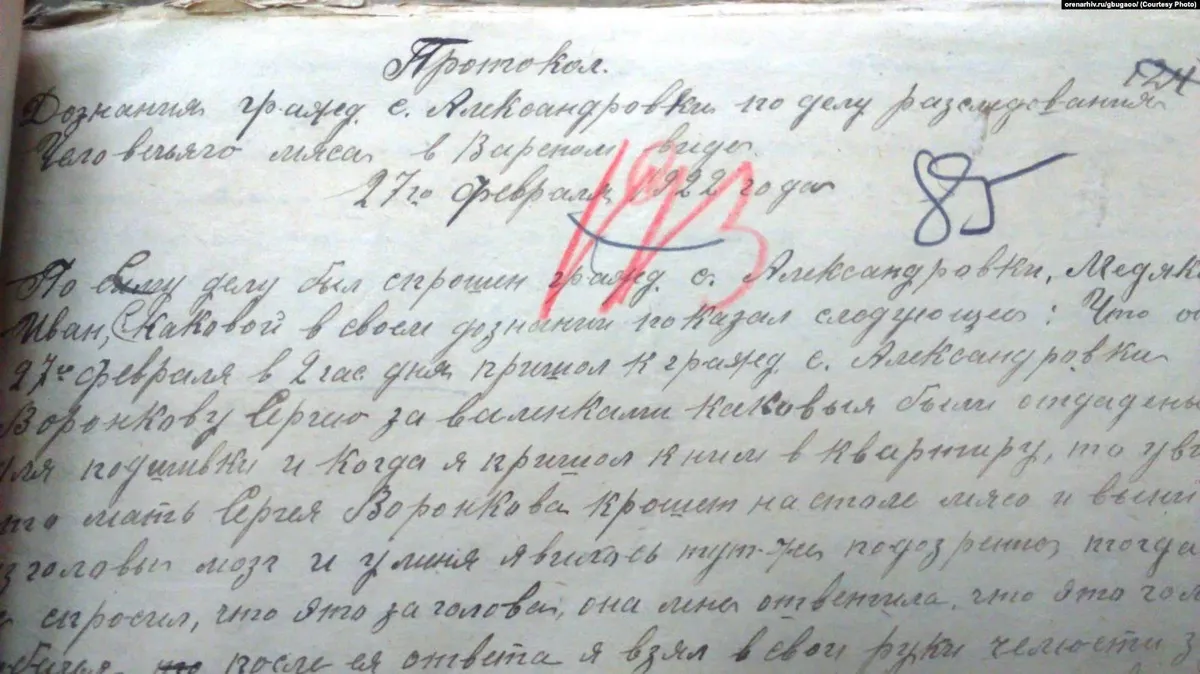 orenarhiv.ru/gbugaoo/ (Courtesy Photo)
Протокол.
124
Дознания гражд. с. Александровки по делу разследования
Человечьяго мяса в Вареном виде
27го февраля 1922 года
85
По делу был спрошен гражд. с. Александровки, Медяк
Иван, Каковой в своем дознании показал следующее: Что
27го февраля в 2 час дня пришол к гражд. с. Александровки
Воронкову Сергию за валенками каковыя были отдадены
для подшивки и когда я пришол к ним в квартиру, то уви
что мать Сергея Воронкова крошет на столе мясо и выни
головы мозг и у миня явилось тут-же подозрение тогда
спросил, что это за голова, она мне ответила, что это
после ея ответа я взял в свои руки челюсти